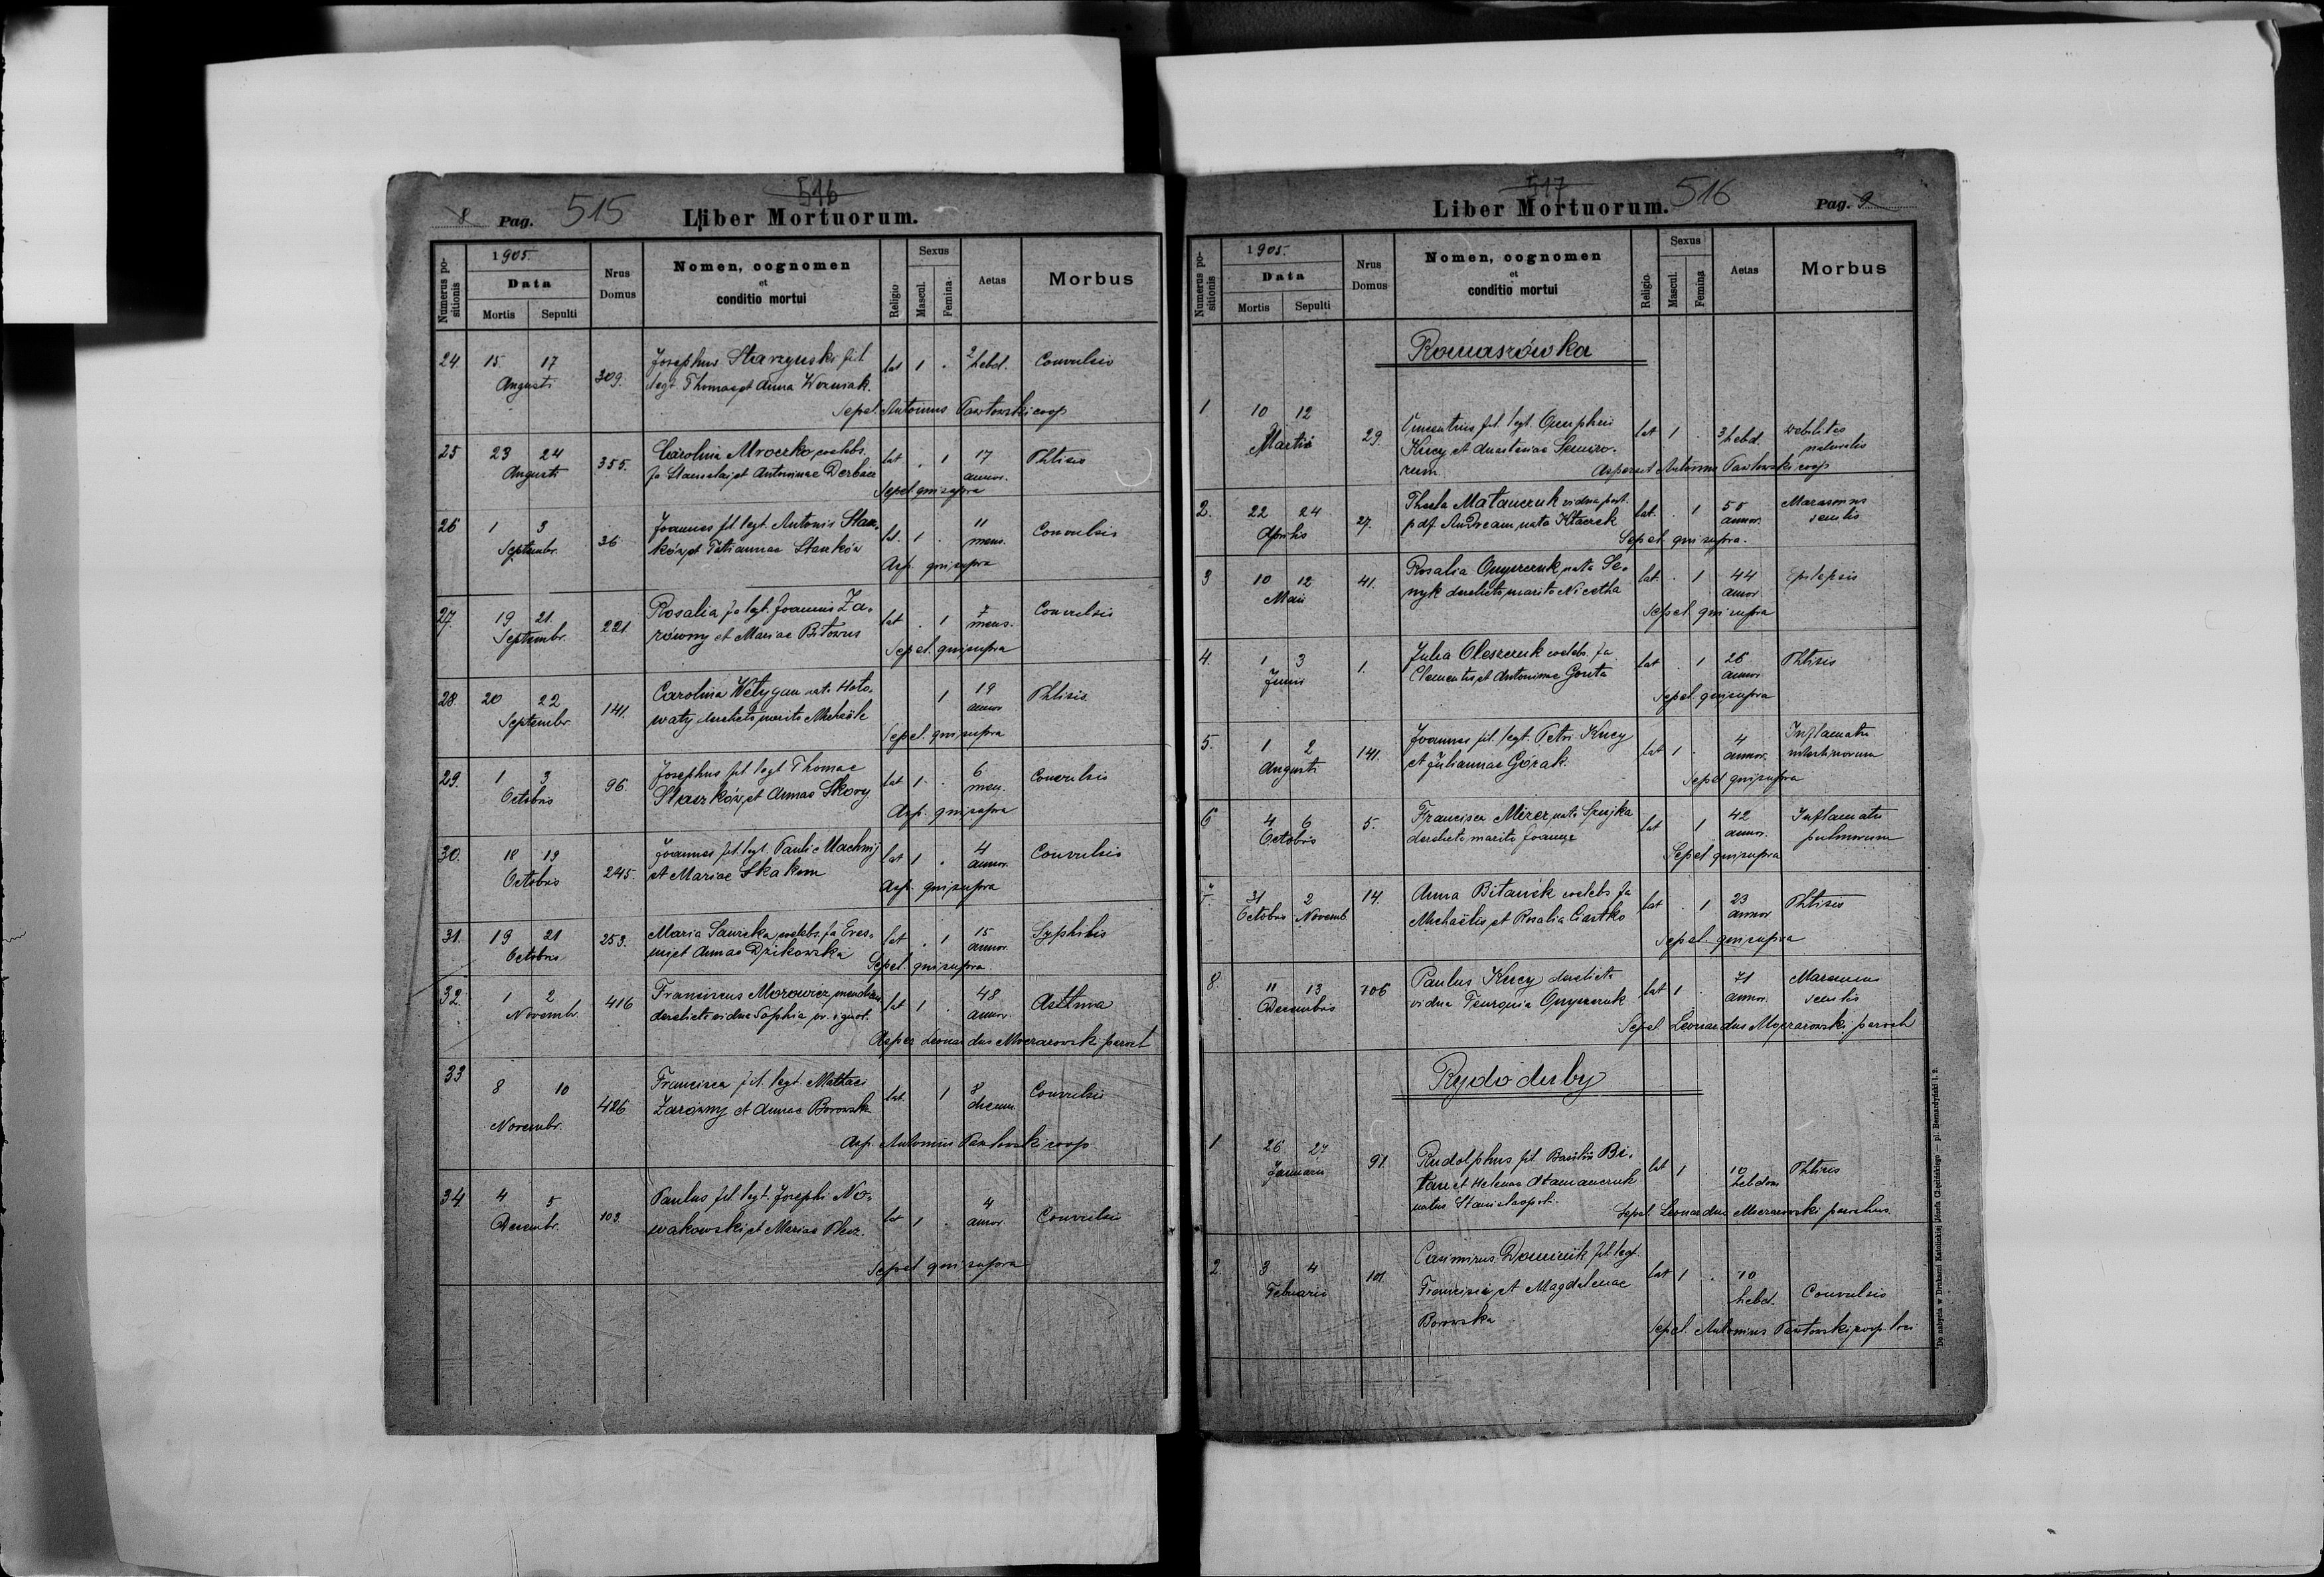 8 Pag. 515 516
Liber Mortuorum.
Numerus positionis
1905.
Data
Mortis Sepulti
Nrus Domus
Nomen, cognomen
et
conditio mortui
Religio
Sexus
Mascul. Femina
Aetas
Morbus
24. 15 17 Augusti 309. Josephus Starzynski fil. lat 1 . 2 hebd. Convulsio
legt. Thomae et Anna Wozniak.
Sepel. Antonius Pawłowski coop
25 23 24 Augusti 355. Carolina Mroczko, coelebs. lat . 1 17 annor. Phtisis
fa Stanislai, et Antoninae Derbace
Sepel qui supra
26 1 3 Septembr. 36 Joannes fil. legt. Antonii Stan- lat. 1 . 11 mens. Convulsio
ków, et Tatiannae Stanków
Asp. qui supra
27. 19 21. Septembr. 221. Rosalia fa legt. Joannis Za- lat . 1 7 mens. Convulsio
równy et Mariae Bitowus
Sepel. qui supra
28. 20 22 Septembr. 141. Carolina Wełygan nata Hoło- 1 19 annor Phtisis.
waty derelicto marito Michaële
Sepel. qui supra
29. 1 3 Octobris 96. Josephus fil. legt. Thomae lat 1 . 6 men. Convulsio
Staszków, et Annae Skory
Asp. qui supra
30. 18 19 Octobris 245. Joannes fil. legt. Pauli Machnij lat 1 . 4 annor. Convulsio
et Mariae Skakun
Asp. qui supra
31. 19 21 Octobris 253. Maria Sawicka, coelebs. fa Eras- lat . 1 15 annor. Syphilis
mi, et Annae Dzikowska
Sepel. qui supra.
32. 1 2 Novembr. 416 Franciscus Morowicz, lat 1 . 48 annor. Asthma
derelicta vidua Sophia pr. ignot.
Asper Leonardus Moczarowski paroch
33 8 10 Novembr. 426 Francisca fil. legt. Mathaei lat. 1 8 dierum. Convulsio
Zarówny et Annae Borowska
Asp. Antonius Pawłowski coop
34. 4 5 Decembr. 103 Paulus fil. legt. Josephi No- lat 1 . 4 annor Convulsio
wakowski, et Mariae Plesz.
Sepel qui supra
517 516 Pag. 9
Liber Mortuorum.
Numerus positionis
1905.
Data
Mortis Sepulti
Nrus Domus
Nomen, cognomen
et
conditio mortui
Religio
Sexus
Mascul. Femina
Aetas
Morbus
Romaszówka
1 10 12 Martii 29. fil. legt. Onuphrii lat 1 . 3 hebd. debilitas naturalis
Kucy et Anastasiae
rum
Asperset Antonius Pawłowski coop
2. 22 24 Aprilis 27. Thecla Matańczuk vidua post. lat. . 1 55 annor. Marasmus senilis
p def. Andream, nata Kłaczek
Sepel. qui supra.
3 10 12 Maii 41. Rosalia Onyszczuk, nata Se- lat. . 1 44 annor Epilepsis
nyk derelicto marito Nicetha
Sepel. qui supra
4. 1 3 Junii 1. Julia Oleszczuk coelebs. fa lat . 1 26 annor. Phtisis
Clementis, et Antonina Gouta
Sepel. qui supra
5. 1 2 Augusti 141. Joannes fil. legt. Petri Kucy lat 1 . 4 annor. Inflamatio intestinorum
et Juliannae Górak.
Sepel qui supra
6 4 6 Octobris 5. Francisca Mierer, nata Szujka lat 1 42 annor. Inflamatio pulmonum
derelicto marito Joanne
Sepel qui supra
7. 31 Octobris 2 Novemb. 14. Anna Bitańsk coelebs fa lat . 1 23 annor Phtisis
Michaëlis, et Rosalia Ciastko
Sepel. qui supra
8. 11 13 Decembris 106 Paulus Kucy derelicta lat 1 71 annor. Marasmus senilis
vidua Onyszczuk
Sepel Leonardus Moczarowski, paroch
Rydoduby
1 26 27 Januarii 91. Rudolphus fil. Basilii Bi- lat 1 . 10 hebdom Phtisis
tan et Helenae Atamanczuk
natus Stanislaopoli.
Sepel. Leonardus Moczarowski parochus.
2. 3 4 Februarii 101. Casimirus Dominik fil. legt. lat 1 . 10 hebd. Convulsio
Francisci, et Magdalenae
Borowska
Sepel. Antonius Pawłowski, coop. loci
Do nabycia w Drukarni Katolickiej Józefa Chęcińskiego — pl. Bernardyński l. 2.